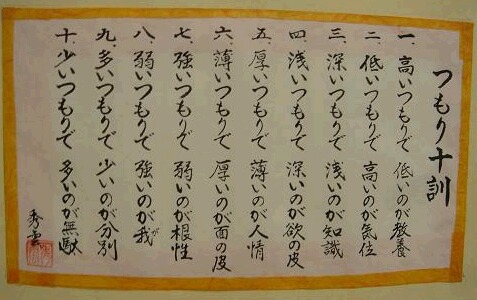 つもり十訓
一、高いつもりで 低いのが教養
二、低いつもりで 高いのが気位
三、深いつもりで 浅いのが知識
四、浅いつもりで 深いのが欲の皮
五、厚いつもりで 薄いのが人情
六、薄いつもりで 厚いのが面の皮
七、強いつもりで 弱いのが根性
八、弱いつもりで 強いのが我
が
九、多いつもりで 少いのが分別
十、少いつもりで 多いのが無駄
秀雲